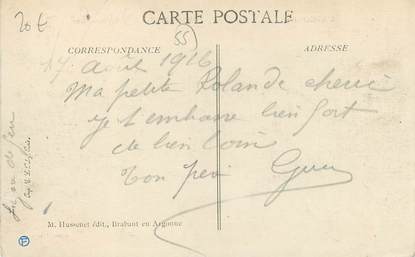 20 €
CARTE POSTALE
55
CORRESPONDANCE
ADRESSE
17 août 1916
Ma petite Rolande cherie
je t'embrasse bien fort
de bien loin
ton
M. Hussenet édit., Brabant en Argonne